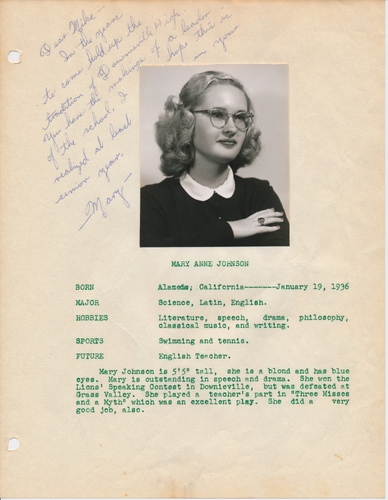 Dear Mike—
In the years
to come hold up the
tradition of Downieville High.
You have the makings of a leader
of the school. I hope this is
realized at least in your
senior year.
Mary—
MARY ANNE JOHNSON
BORN Alameda, California-------January 19, 1936
MAJOR Science, Latin, English.
HOBBIES Literature, speech, drama, philosophy,
classical music, and writing.
SPORTS Swimming and tennis.
FUTURE English Teacher.
Mary Johnson is 5'5" tall, she is a blond and has blue
eyes. Mary is outstanding in speech and drama. She won the
Lions' Speaking Contest in Downieville, but was defeated at
Grass Valley. She played a teacher's part in "Three Misses
and a Myth" which was an excellent play. She did a very
good job, also.